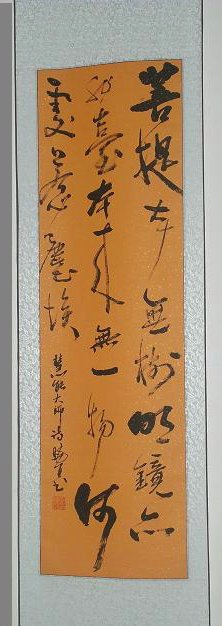 菩提本無樹明鏡亦
非臺本來無一物何
處惹塵埃
慧能大師詩